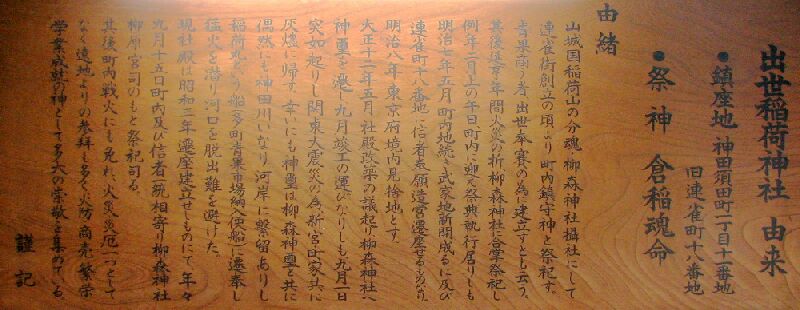 出世稲荷神社 由来
●鎮座地 神田須田町一丁目十一番地
旧連雀町十八番地
●祭神 倉稲魂命
由緒
山城国稲荷山の分魂、柳森神社攝社にして
連雀街創立の頃より町内鎮守神と祭祀す。
青果商の者出世奉賽の為に建立すとも云う。
其後 年間火災の折柳森神社に合掌祭祀し
例年二月上の午日町内に迎え祭典執行居りしも
明治七年五月町内地続き武家地新開成るに及び
連雀町十八番地へ信者 願遷宮遷座せるものなり、
明治八年東京府境内見捨地とす。
大正十二年五月社殿改築の議起り柳森神社へ
神霊を遷し九月竣工の運びなりしも九月一日
突如起りし関東大震災の為新宮 共に
灰燼に帰す。幸いにも神霊は柳森神霊と共に
偶然にも神田川いなり河岸に繋留ありし
稲荷丸なる船 多町青果市場納入便船に遷奉し
猛火を潜り河口を脱出難を避けた。
現社殿は昭和三年遷座建立せしものにて、年々
九月十五日町内及び信者 相寄り柳森神社
柳原宮司のもと祭祀司る。
其後町内戦火にも免れ、火災災厄一つとして
なく遠地よりの参拝も多く火防、商売繁栄
学業成就の神として多大の崇敬を集めている。
謹記